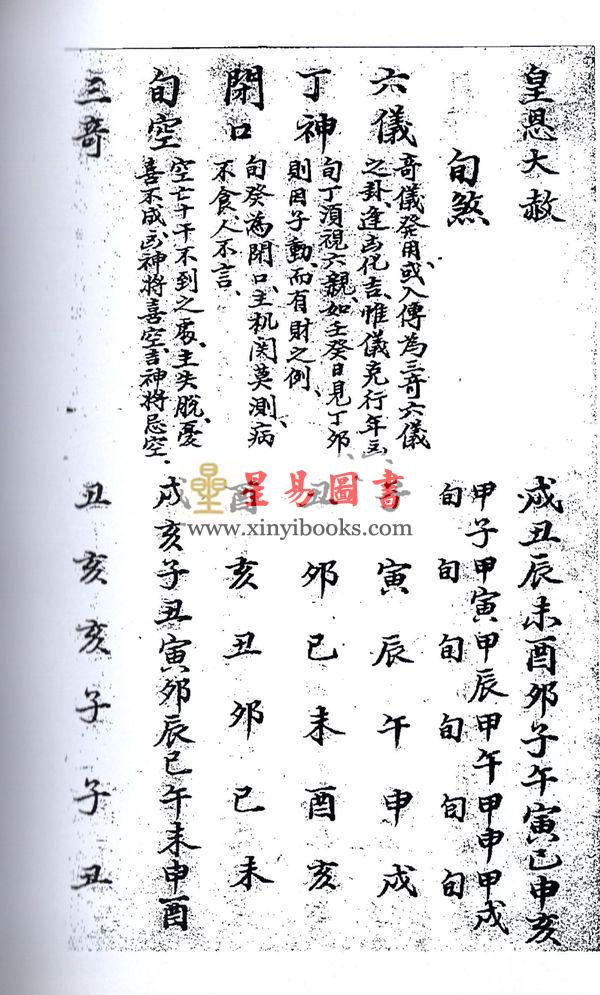 皇恩大赦 戌丑辰未酉卯子午寅巳申亥
旬煞 甲子旬 甲寅旬 甲辰旬 甲午旬 甲申旬 甲戌旬
六儀
奇儀發用或入傳為三奇六儀
之卦、逢凶化吉、惟儀克行年凶
寅辰午申戌
丁神
旬丁須視六親、如壬癸日見丁卯
則因子動、而有財之例、
卯巳未酉亥
閉口
旬癸為閉口、主机関莫測、病
不食人不言、
亥丑卯巳未
旬空
空亡十干不到之處、主失脫、憂
喜不成、凶神將喜空、吉神將忌空.
戌亥子丑寅卯辰巳午未申酉
三奇 丑亥亥子子丑
星易圖書
www.xinyibooks.com